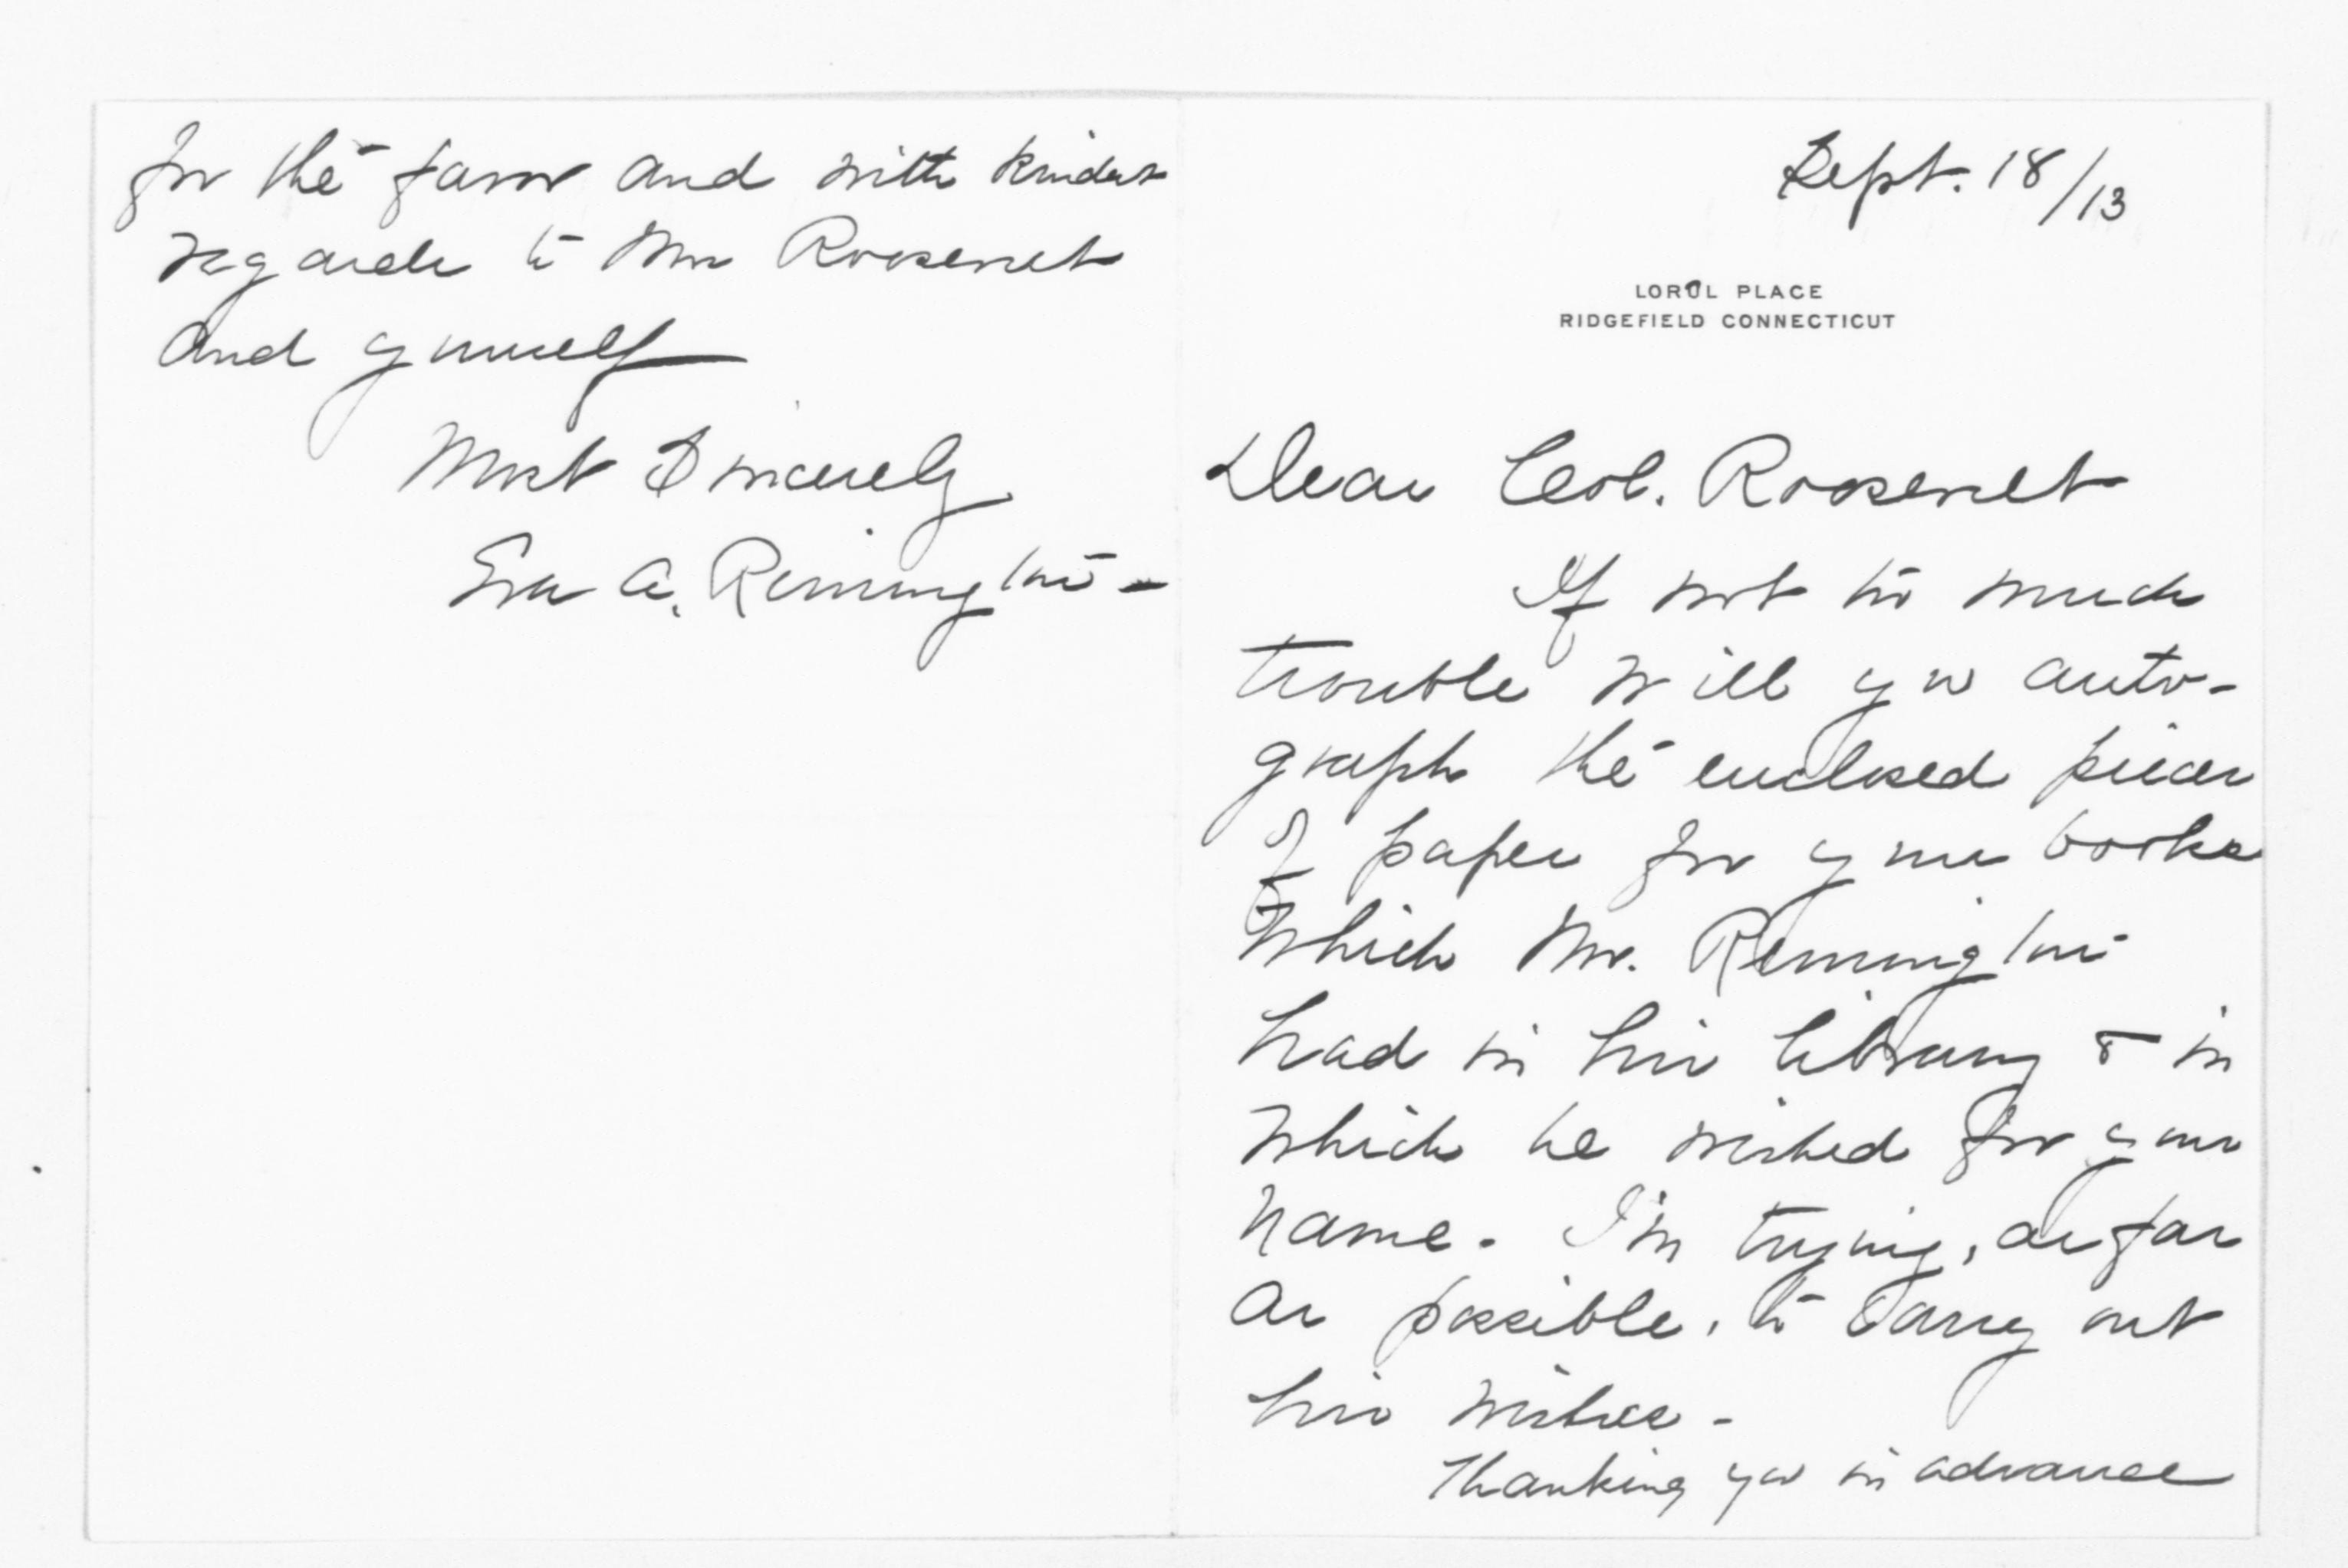 Sept. 18/13
LORUL PLACE
RIDGEFIELD CONNECTICUT
Dear Col. Roosevelt
If not too much
trouble will you auto-
graph the enclosed pieces
of paper for your books
which Mr. Remington
had in his library & in
which he wished for your
name. I'm trying, as far
as possible, to carry out
his wishes -
Thanking you in advance
for the favor and with kindest
regards to Mrs Roosevelt
and yourself
Most Sincerely
Eva A. Remington -